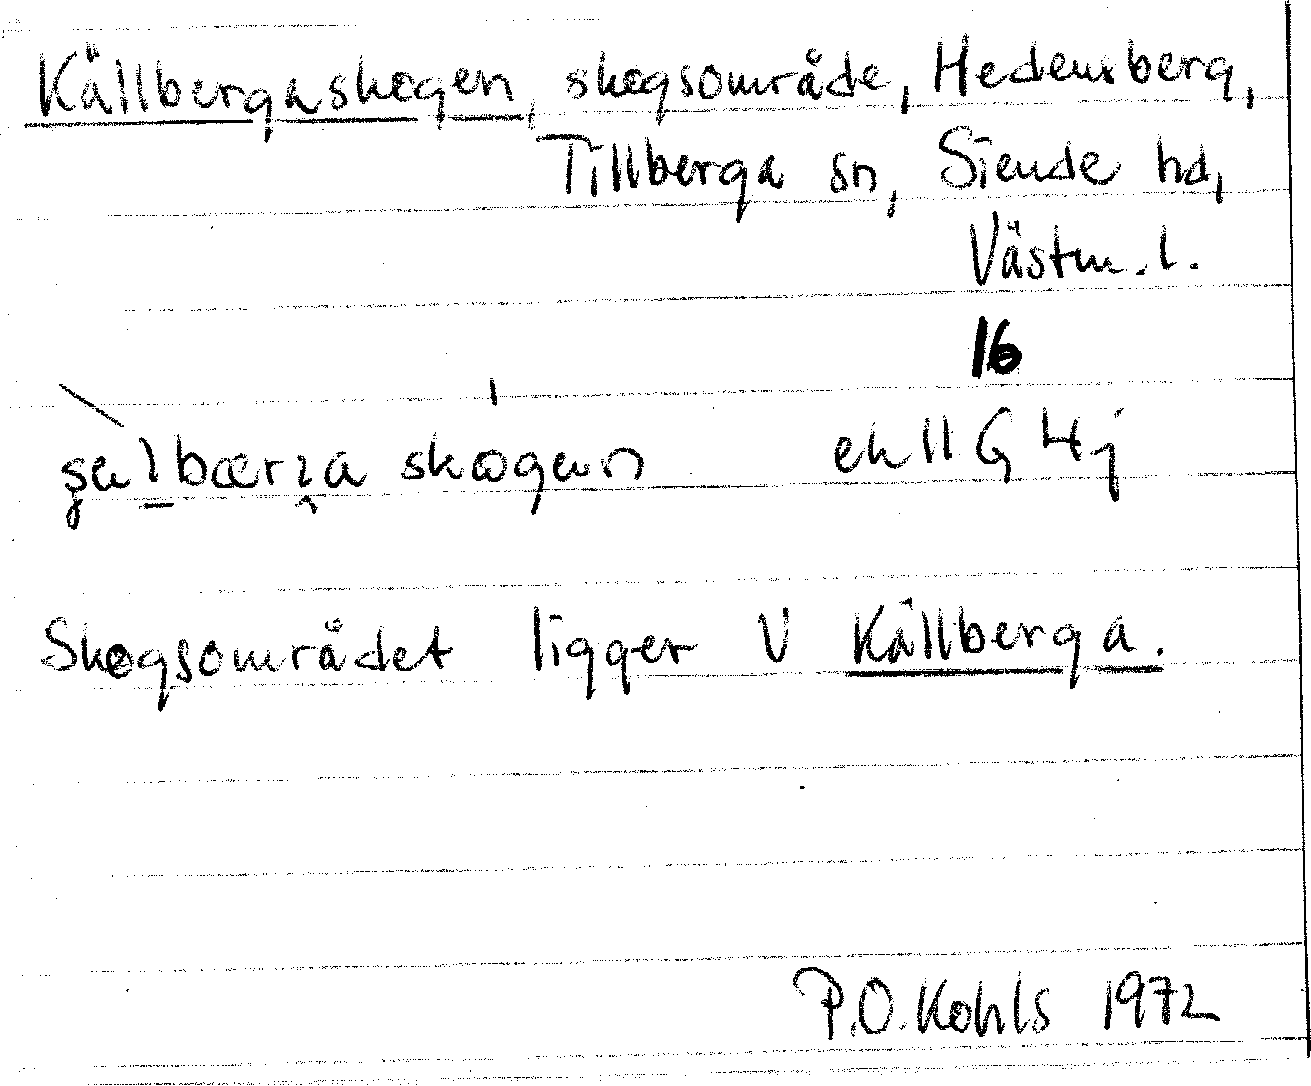 Källbergaskogen, skogsområde, Hedensberg,
Tillberga sn, Siende hd,
Västm. l.
16
skogen ek 11G 4j
Skogsområdet ligger V Källberga.
P.O. Kohls 1972